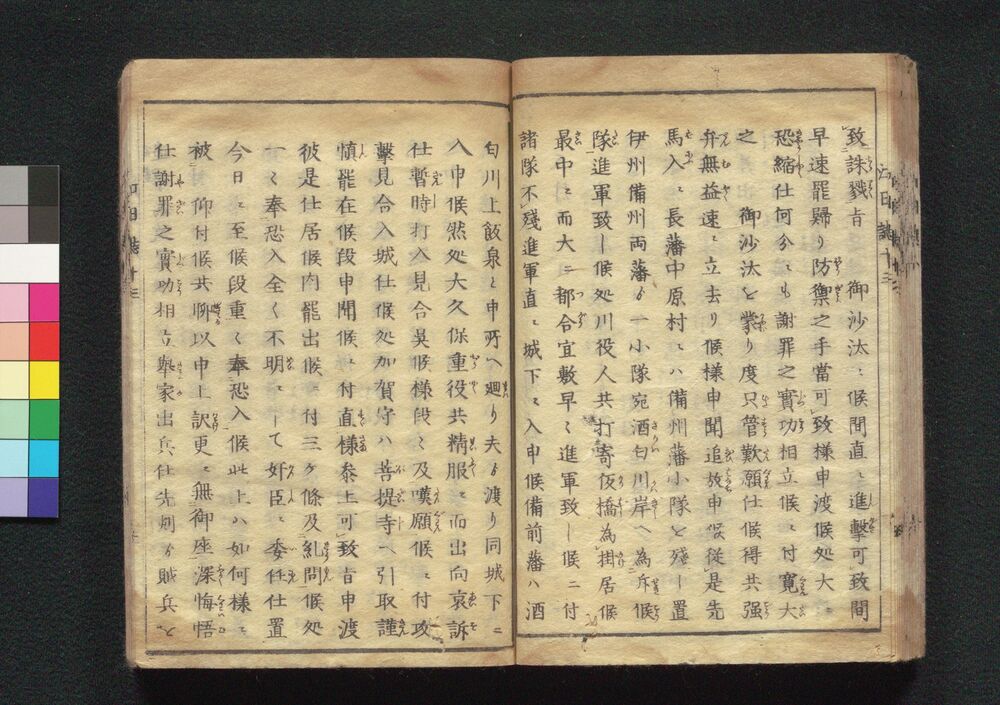 致誅戮旨　御沙汰ニ候間直ニ進撃可致間
早速罷歸り防禦之手當可致様申渡候処大ニ
恐縮仕何分ニも謝罪之實功相立候ニ付寛大
之　御沙汰を蒙り度只管歎願仕候得共强
弁無益速ニ立去り候様申聞追放申候従是先
馬入ニ長藩中原村ニハ備州藩小隊を残し置
伊州備州両藩ゟ一小隊宛酒匂川岸へ為斥候
隊進軍致し候処川役人共打寄仮橋為掛居候
最中ニ而大ニ都合宜敷早々進軍致し候ニ付
諸隊不残進軍直ニ城下ニ入申候備前藩ハ酒
匂川上飯泉と申所へ廻り夫ゟ渡り同城下ニ
入申候然処大久保重役共精服ニ而出向哀訴
仕暫時打入見合呉候様段々及嘆願候ニ付攻
擊見合入城仕候処加賀守ハ菩提寺へ引取謹
慎罷在候段申聞候ニ付直様参上可致旨申渡
彼是仕居候内罷出候ニ付三ヶ條及糺問候処
一々奉恐入全く不明ニして奸臣ニ委任仕置
今日ニ至候段重々奉恐入候此上ハ如何様ニ
被　仰付候共聊以申上訳更ニ無御座深悔悟
仕謝罪之實功相立擧家出兵仕先刻ゟ賊兵と